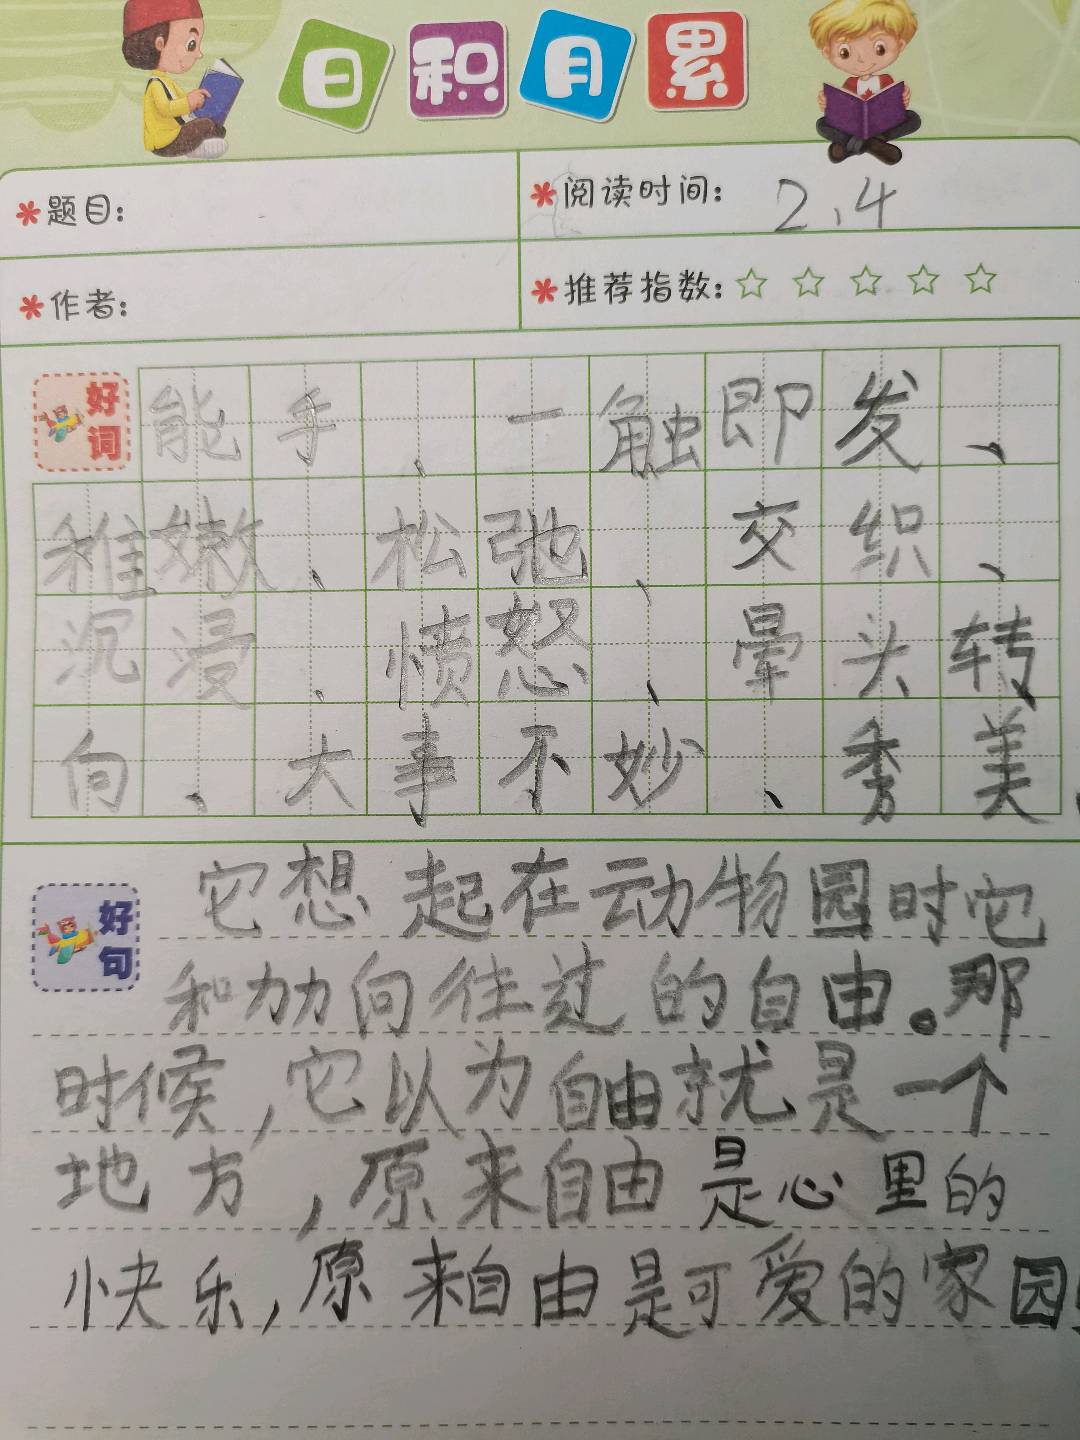 日积月累
题目:
阅读时间: 2.4
作者:
推荐指数:
好词
能手、一触即发、
稚嫩、松弛、交织、
沉浸、愤怒、晕头转
向、大事不妙、秀美、
好句
它想起在动物园时它
和加加向往过的自由。那
时候,它以为自由就是一个
地方,原来自由是心里的
快乐,原来自由是可爱的家园!